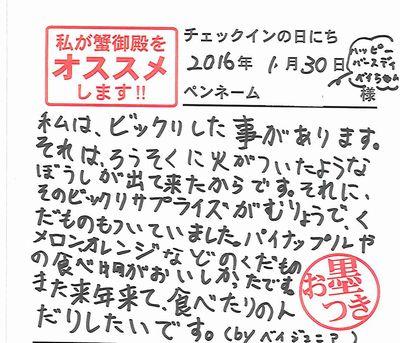 私が蟹御殿を
オススメ
します!!
チェックインの日にち
2016年 1月30日
ペンネーム
ハッピー
バースディ
ベイちゃん
様
私は、ビックリした事があります。
それは、ろうそくに火がついたような
ぼうしが出て来たからです。それに、
そのビックリサプライズがむりょうで、く
だものもついていました。パイナップルや
メロン、オレンジなどのくだもの
の食べ物がおいしかったです。
また来年来て、食べたりのん
だりしたいです。(byベイジュニア)
お墨つき